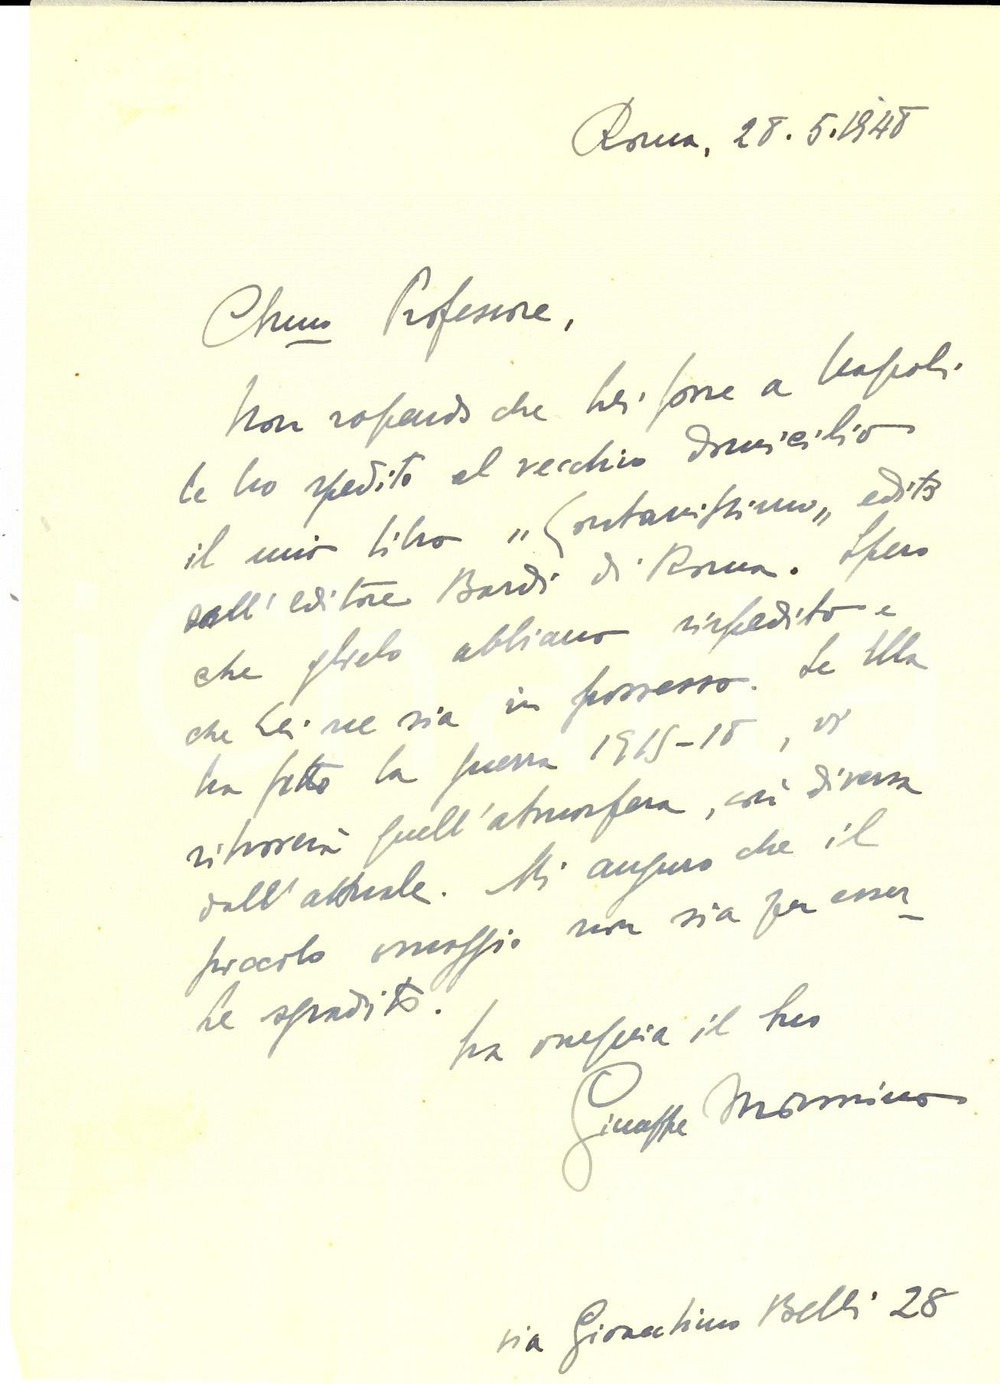 Roma, 28.5.1948
Ch.mo Professore,
Non sapendo che Lei fosse a Napoli
le ho spedito al vecchio domicilio
il mio libro "Lontanissimo" edito
dall'editore Bardi di Roma. Spero
che glielo abbiano rispedito e
che Lei ne sia in possesso. Se Ella
ha fatto la guerra 1915-18, vi
ritroverà quell'atmosfera, così diversa
dall'attuale. Mi auguro che il
piccolo omaggio non sia per esser_
le sgradito.
La ossequia il suo
Giuseppe
via Gioacchino Belli 28